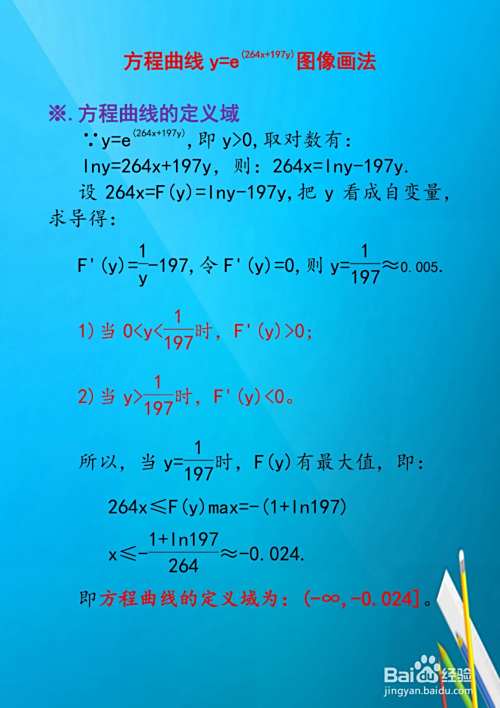 方程曲线y=e^(264x+197y)图像画法
※.方程曲线的定义域
∵y=e^(264x+197y),即y>0,取对数有:
lny=264x+197y, 则: 264x=lny-197y.
设 264x=F(y)=lny-197y,把 y 看成自变量,
求导得:
F'(y)=1/y-197,令F'(y)=0,则y=1/197≈0.005.
1)当 0<y<1/197时, F'(y)>0;
2)当 y>1/197时, F'(y)<0。
所以, 当 y=1/197时, F(y)有最大值, 即:
264x≤F(y)max=-(1+ln197)
x≤-(1+ln197)/264≈-0.024.
即方程曲线的定义域为: (-∞,-0.024]。
Baidu经验
jingyan.baidu.com